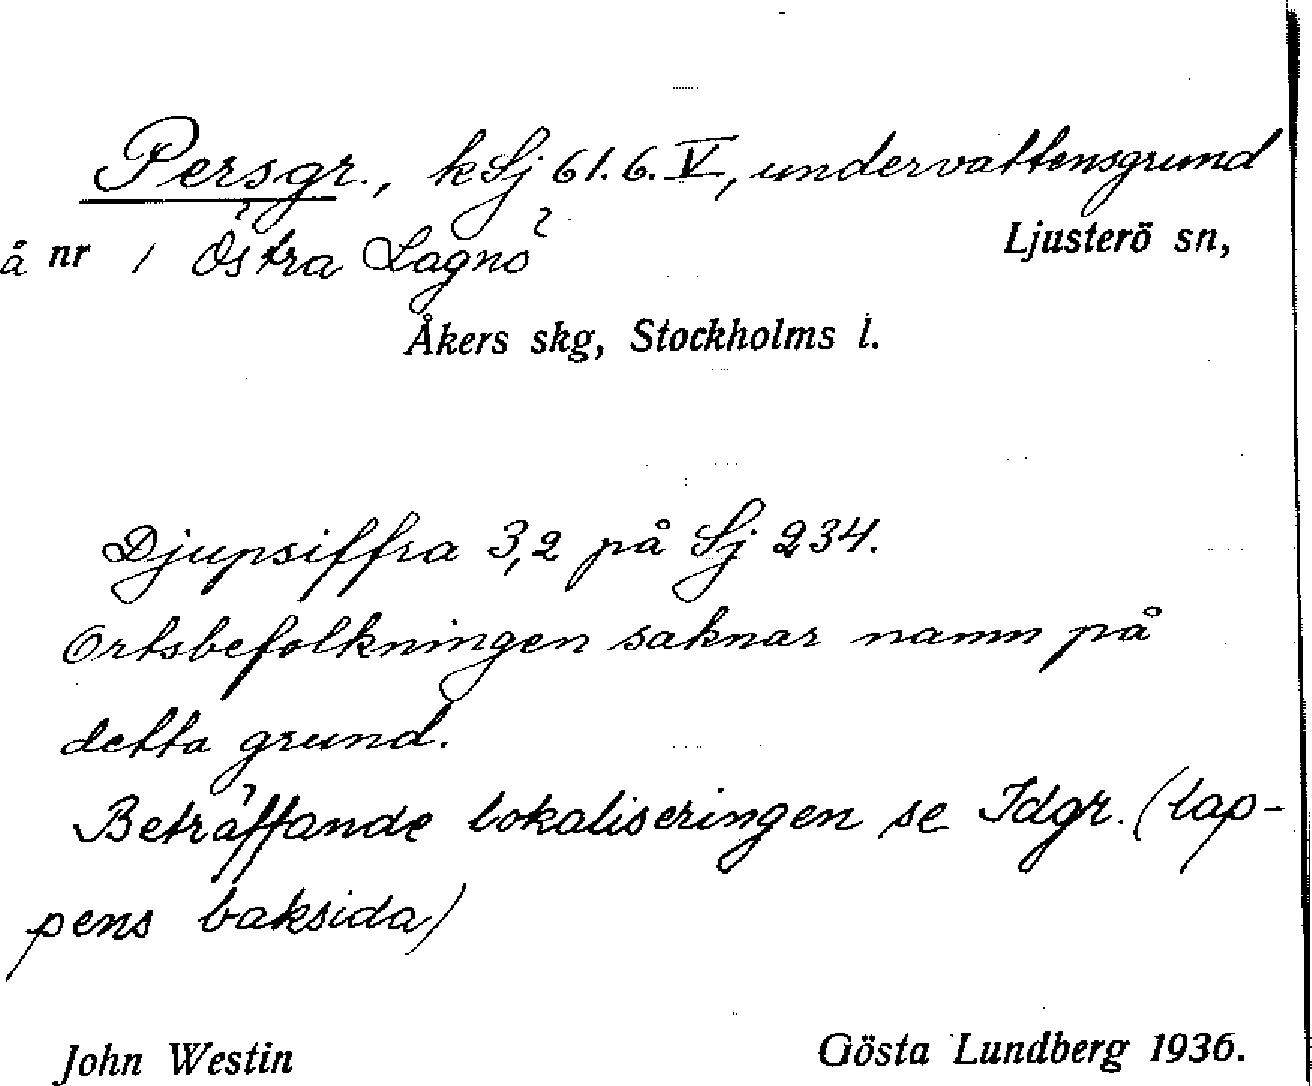 Persgr., k Sj 61.6.V, undervattensgrund
å nr 1 Östra Lagnö Ljusterö sn,
Åkers skg, Stockholms l.
Djupsiffra 3,2 på Sj 234.
Ortsbefolkningen saknar namn på
detta grund.
Beträffande lokaliseringen se Idgr. (lap-
pens baksida)
John Westin Gösta Lundberg 1936.